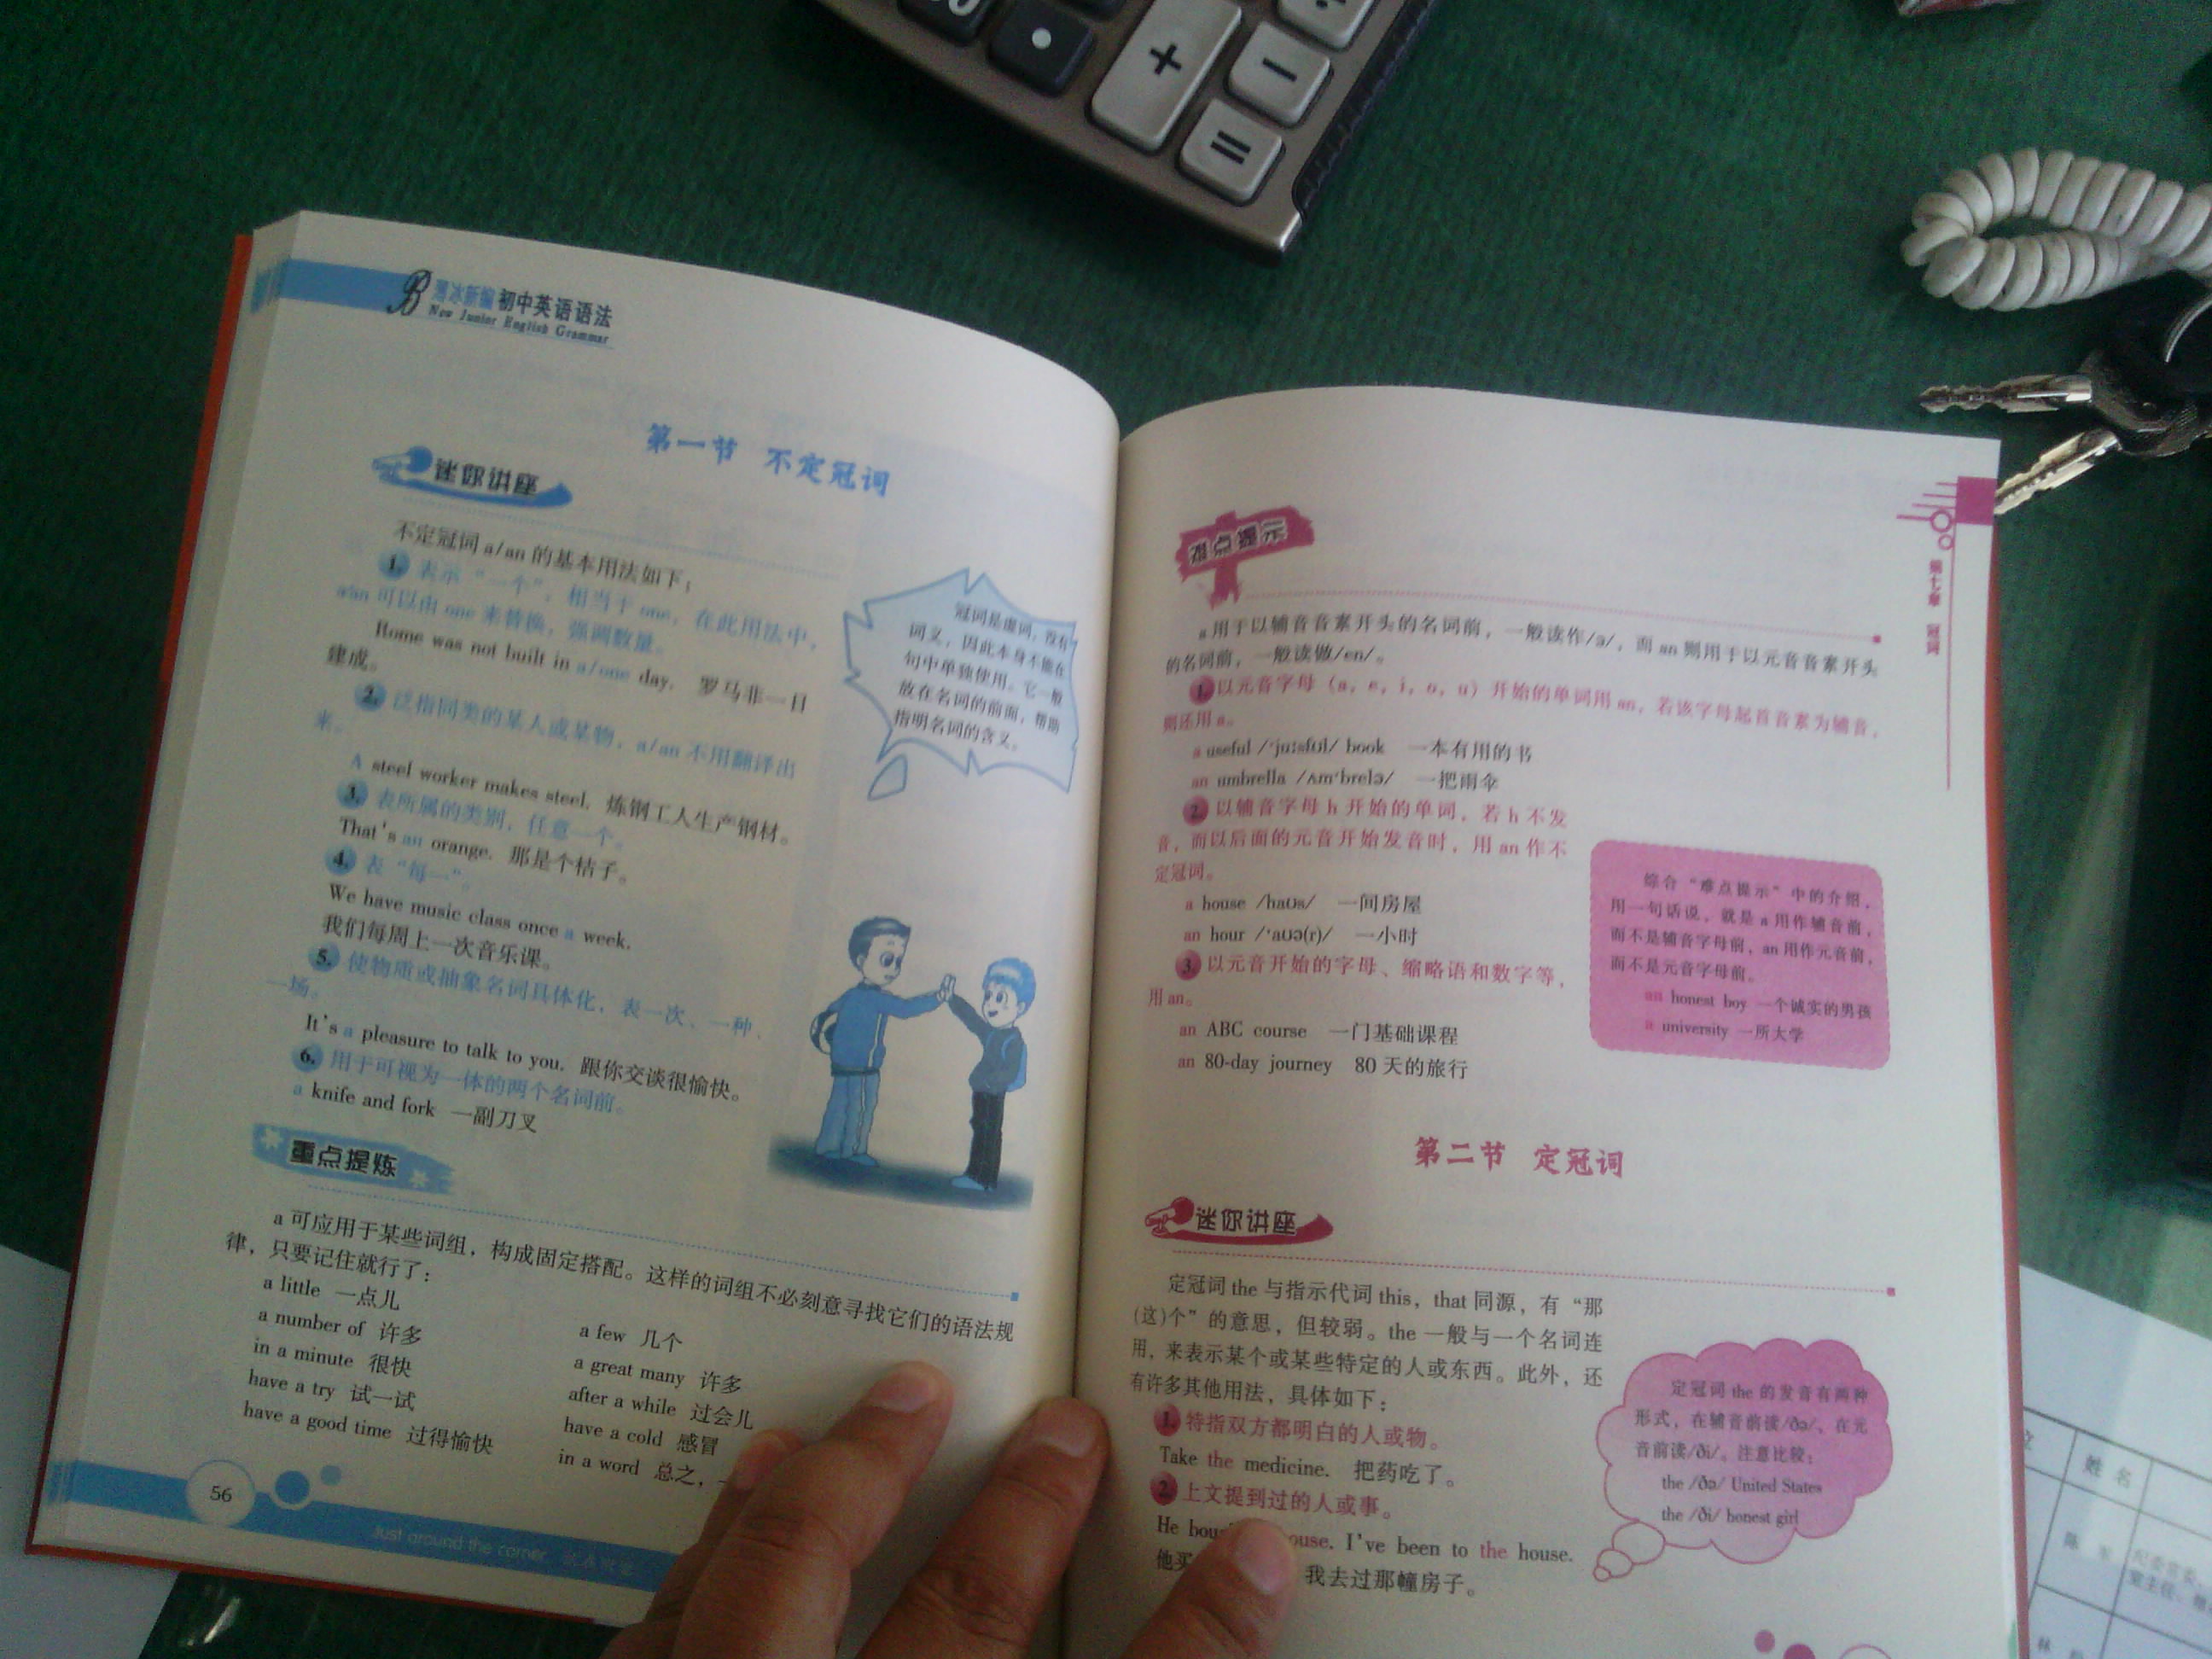 薄冰新编 初中英语语法
New Junior English Grammar
第一节 不定冠词
迷你讲座
不定冠词 a/an 的基本用法如下:
1. 表示“一个”,相当于 one,在此用法中,
a/an 可以由 one 来替换,强调数量。
Rome was not built in a/one day. 罗马非一日
建成。
2. 泛指同类的某人或某物,a/an 不用翻译出
来。
A steel worker makes steel. 炼钢工人生产钢材。
3. 表所属的类别,任意一个。
That's an orange. 那是个桔子。
4. 表“每一”。
We have music class once a week.
我们每周上一次音乐课。
5. 使物质或抽象名词具体化,表一次、一种、
一场。
It's a pleasure to talk to you. 跟你交谈很愉快。
6. 用于可视为一体的两个名词前。
a knife and fork 一副刀叉
冠词是虚词,没有
词义,因此本身不能在
句中单独使用。它一般
放在名词的前面,帮助
指明名词的含义。
重点提炼
a 可应用于某些词组,构成固定搭配。这样的词组不必刻意寻找它们的语法规
律,只要记住就行了:
a little 一点儿
a few 几个
a number of 许多
a great many 许多
in a minute 很快
after a while 过会儿
have a try 试一试
have a cold 感冒
have a good time 过得愉快
in a word 总之,
56
Just around the corner
难点提示
第七章 冠词
a 用于以辅音音素开头的名词前,一般读作/ə/,而 an 则用于以元音音素开头
的名词前,一般读做/en/。
1. 以元音字母(a,e,i,o,u)开始的单词用 an,若该字母起首音素为辅音,
则还用 a。
a useful /'juːsfʊl/ book 一本有用的书
an umbrella /ʌm'brelə/ 一把雨伞
2. 以辅音字母 h 开始的单词,若 h 不发
音,而以后面的元音开始发音时,用 an 作不
定冠词。
a house /haʊs/ 一间房屋
an hour /'aʊə(r)/ 一小时
3. 以元音开始的字母、缩略语和数字等,
用 an。
an ABC course 一门基础课程
an 80-day journey 80 天的旅行
综合“难点提示”中的介绍,
用一句话说,就是 a 用作辅音前,
而不是辅音字母前,an 用作元音前,
而不是元音字母前。
an honest boy 一个诚实的男孩
a university 一所大学
第二节 定冠词
迷你讲座
定冠词 the 与指示代词 this,that 同源,有“那
(这)个”的意思,但较弱。the 一般与一个名词连
用,来表示某个或某些特定的人或东西。此外,还
有许多其他用法,具体如下:
1. 特指双方都明白的人或物。
Take the medicine. 把药吃了。
2. 上文提到过的人或事。
He ouse. I've been to the house.
他买 我去过那幢房子。
定冠词 the 的发音有两种
形式,在辅音前读/ðə/、在元
音前读/ði/。注意比较:
the /ðə/ United States
the /ði/ honest girl
+
−
=
÷
姓 名